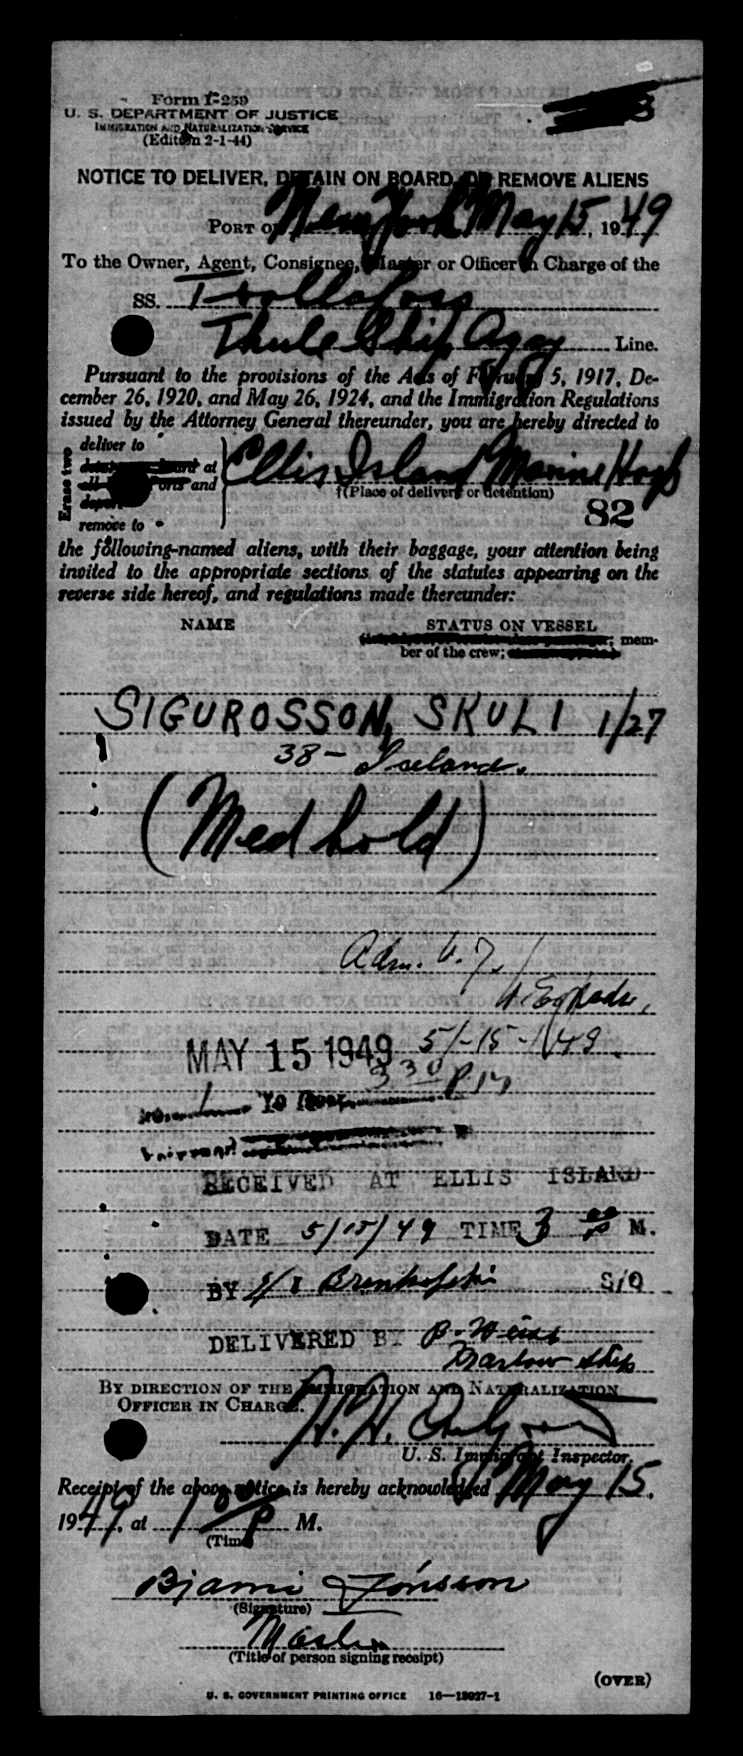 Form I-259
U. S. DEPARTMENT OF JUSTICE
IMMIGRATION AND NATURALIZATION SERVICE
(Edition 2-1-44)
NOTICE TO DELIVER, DETAIN ON BOARD, OR REMOVE ALIENS
PORT OF New York May 15, 1949
To the Owner, Agent, Consignee, Master or Officer in Charge of the
SS. Trollafoss
Thule Ship Agcy Line.
Pursuant to the provisions of the Acts of February 5, 1917, De-
cember 26, 1920, and May 26, 1924, and the Immigration Regulations
issued by the Attorney General thereunder, you are hereby directed to
Erase two
deliver to
at
and
remove to
Ellis Island Marine Hosp
†(Place of delivery or detention)
82
the following-named aliens, with their baggage, your attention being
invited to the appropriate sections of the statutes appearing on the
reverse side hereof, and regulations made thereunder:
NAME STATUS ON VESSEL
; mem-
ber of the crew;
SIGUROSSON, SKULI 1/27
38 - Iseland.
(Med hold)
Adm.
5/-15-1949.
MAY 15 1949
3 30 P.M
RECEIVED AT ELLIS ISLAND
DATE 5/15/49 TIME 3 00 P M.
BY S/O
DELIVERED BY B. Weiss
Barlow Ship
BY DIRECTION OF THE IMMIGRATION AND NATURALIZATION
OFFICER IN CHARGE.
H. H.
U. S. Immigrant Inspector.
Receipt of the above notice is hereby acknowledged May 15,
1949, at 1 00 P M.
(Time)
Bjarni Jónsson
(Signature)
Master
(Title of person signing receipt)
(OVER)
U. S. GOVERNMENT PRINTING OFFICE 16—18027-1